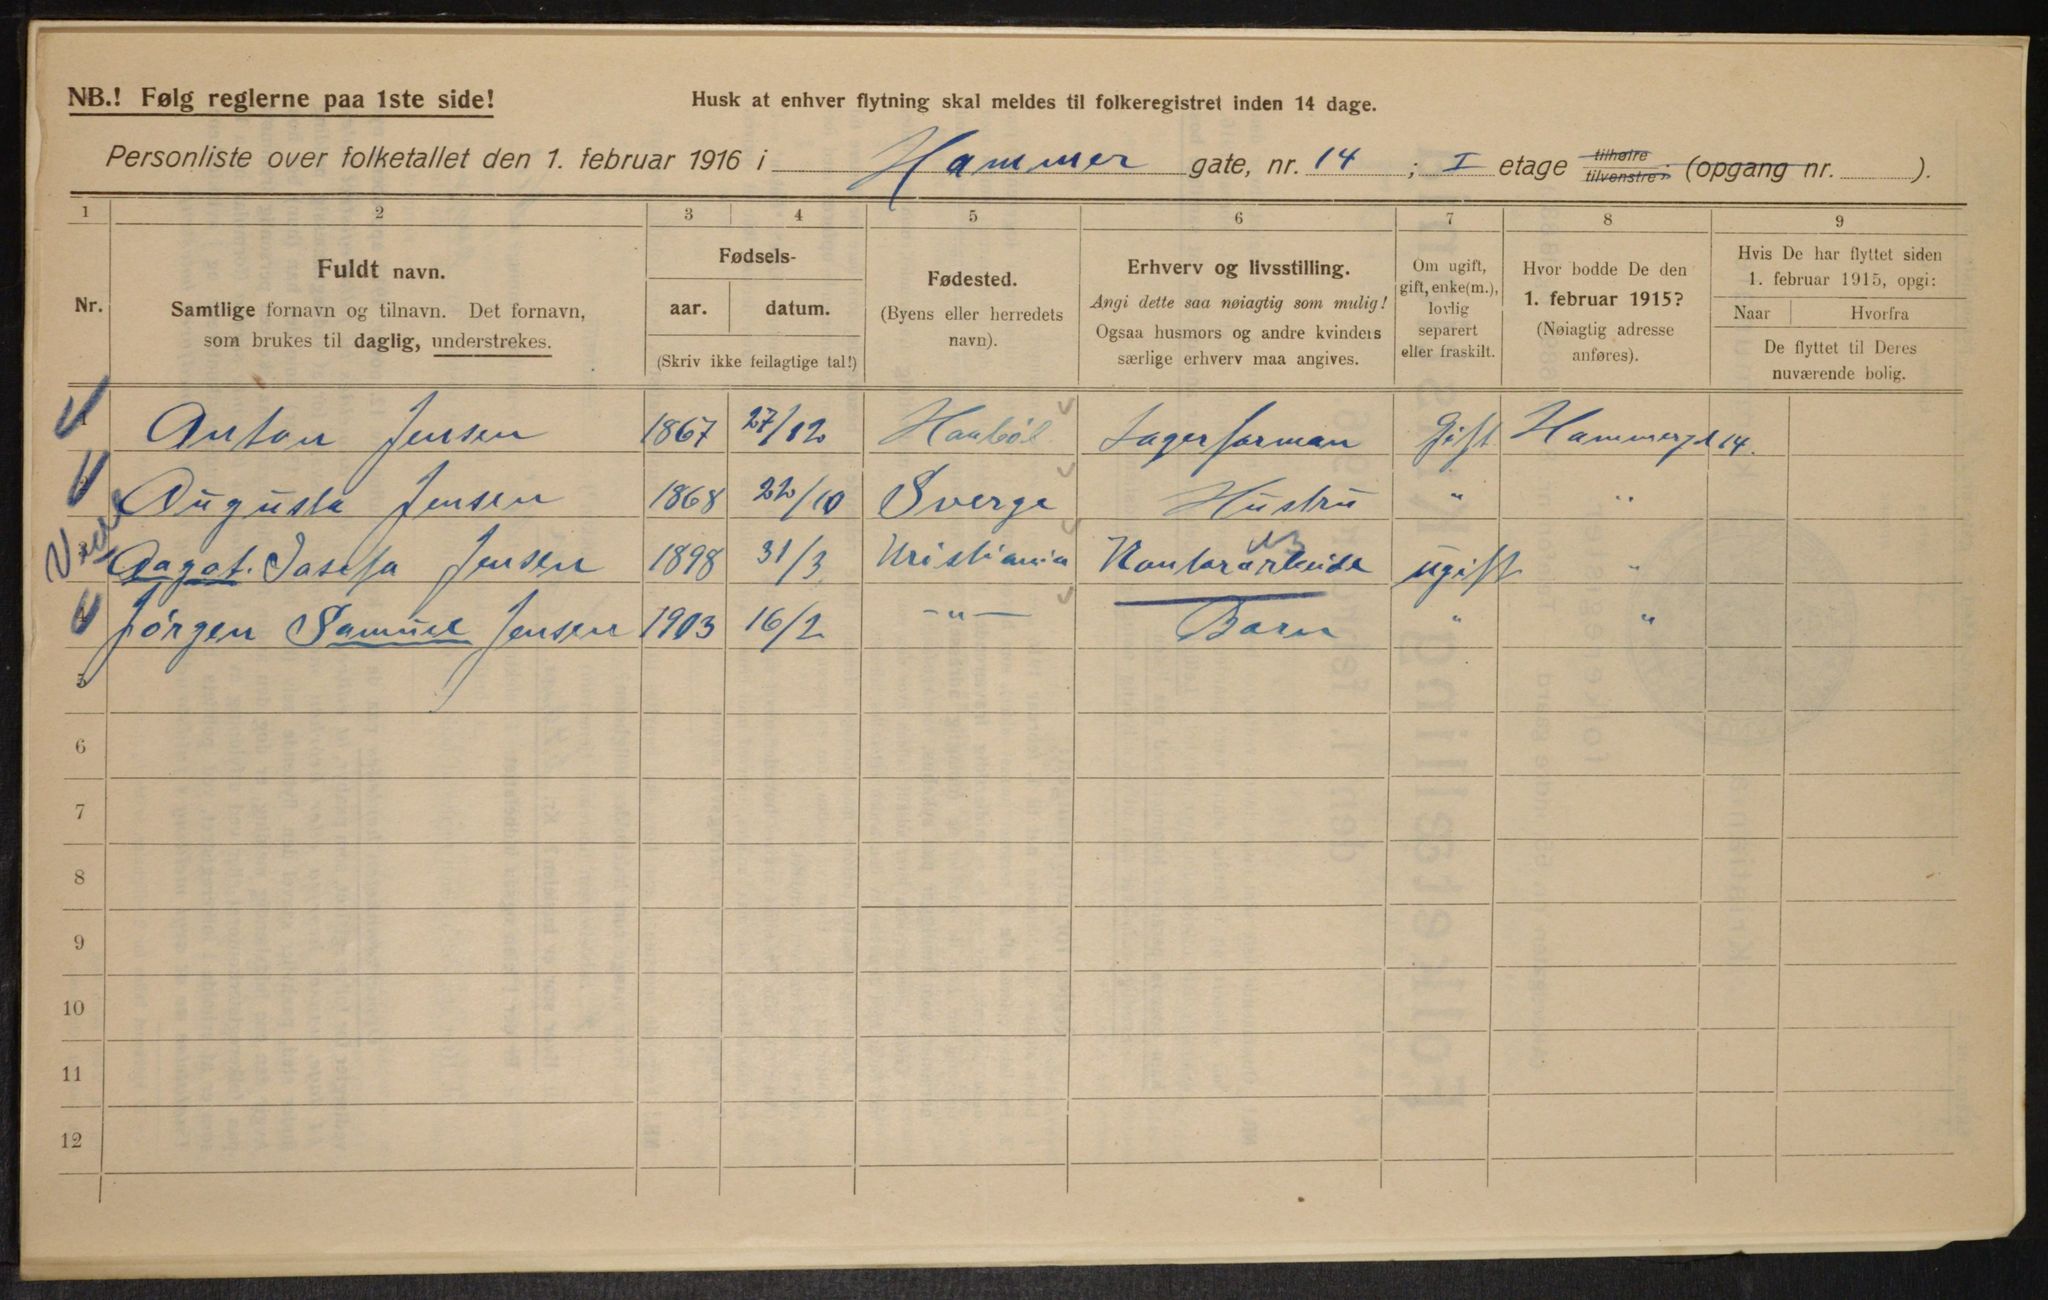 NB.! Følg reglerne paa 1ste side!
Husk at enhver flytning skal meldes til folkeregistret inden 14 dage.
Personliste over folketallet den 1. februar 1916 i Hammer gate, nr. 14 ; I etage tilhøire tilvenstre; (opgang nr. ).
1 2 3 4 5 6 7 8 9
Nr.
Fuldt navn.
Samtlige fornavn og tilnavn. Det fornavn,
som brukes til daglig, understrekes.
Fødsels-
aar. datum.
(Skriv ikke feilagtige tal!)
Fødested.
(Byens eller herredets
navn).
Erhverv og livsstilling.
Angi dette saa nøiagtig som mulig!
Ogsaa husmors og andre kvinders
særlige erhverv maa angives.
Om ugift,
gift, enke(m.),
lovlig
separert
eller fraskilt.
Hvor bodde De den
1. februar 1915?
(Nøiagtig adresse
anføres).
Hvis De har flyttet siden
1. februar 1915, opgi:
Naar Hvorfra
De flyttet til Deres
nuværende bolig.
1 Anton Jensen 1867 27/12 Haabøl Lagerforman Gift Hammergt 14.
2 Augusta Jensen 1868 22/10 Sverge Hustru " "
3 Aagot Josefa Jensen 1898 31/3 Kristiania ugift "
4 Jørgen Samuel Jensen 1903 16/2 -"- Barn " "
5
6
7
8
9
10
11
12